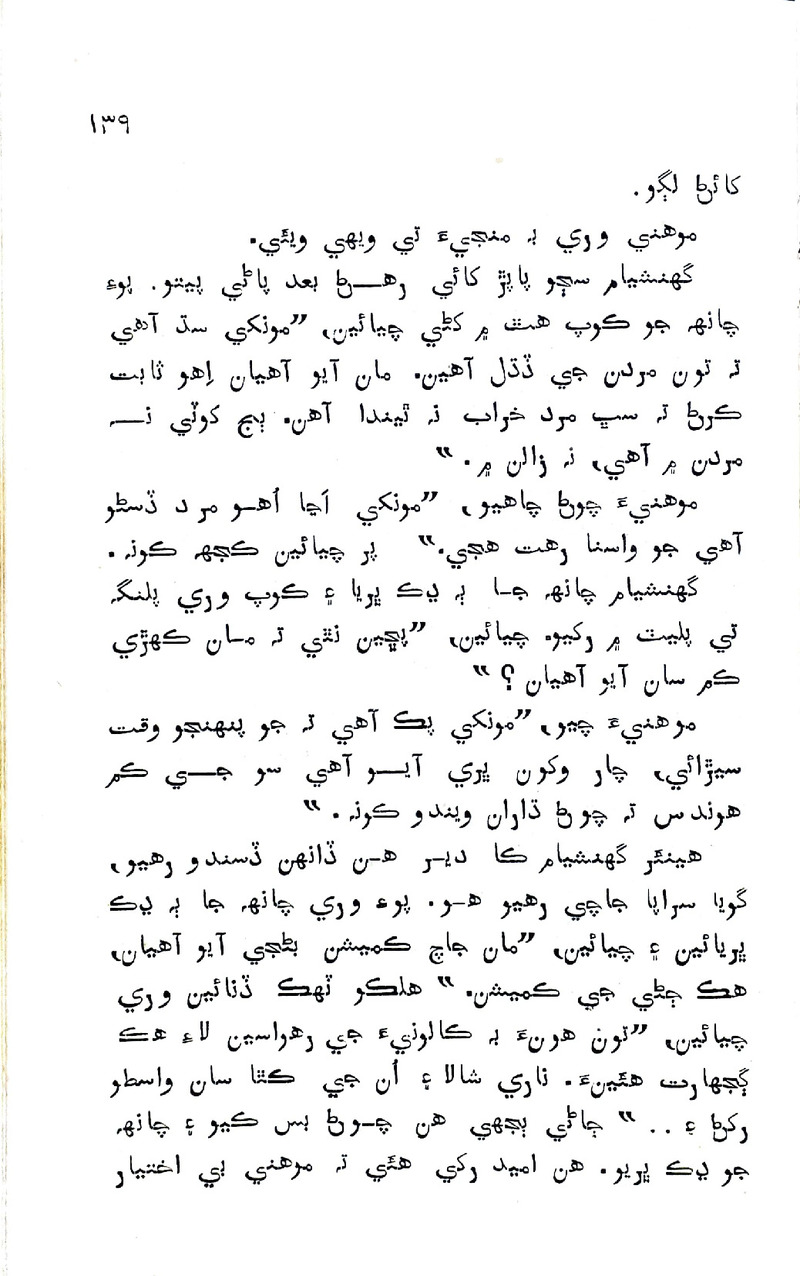 ١٣٩
کائڻ لڳو.
موهني وري بہ منجيءَ تي ويهي ويئي.
گهنشيام سڄو پاپڙ کائي رهـــڻ بعد پاڻي پيتو. پوءِ
چانهہ جو ڪوپ هٿ ۾ کڻي چيائين، ”مونکي سڌ آهي
تہ تون مردن جي ڏڌل آهين. مان آيو آهيان اِهو ثابت
ڪرڻ تہ سڀ مرد خراب نہ ٿيندا آهن. ٻيج کوٽي نـــہ
مردن ۾ آهي، نہ زالن ۾.“
موهنيءَ چوڻ چاهيو، ”مونکي اَڃا اُهـو مرد ڏسڻو
آهي جو واسنا رهت هجي.“ پر چيائين ڪجهہ ڪونہ.
گهنشيام چانهہ جـا ٻہ ڍڪ ڀريا ۽ ڪوپ وري پلنگہ
تي پليٽ ۾ رکيو. چيائين، ”پڇين نٿي تہ مـان ڪهڙي
ڪم سان آيو آهيان؟“
موهنيءَ چيو، ”مونکي پڪ آهي تہ جو پنهنجو وقت
سيڙائي، چار وکون ڀري آيـــو آهي سو جـــي ڪم
هوندس تہ چوڻ ڌاران ويندو ڪونہ.“
هينئر گهنشيام کا ديـر هـن ڏانهن ڏسندو رهيو،
گويا سراپا جاچي رهيو هـو. پوءِ وري چانهہ جا ٻہ ڍڪ
ڀريائين ۽ چيائين، ”مان جاچ ڪميشن بڻجي آيو آهيان،
هڪ ڄڻي جي ڪميشن.“ هلڪو ٽهڪ ڏنائين وري
چيائين، ”تون هونءَ بہ ڪالونيءَ جي رهواسين لاءِ هڪ
ڳجهارت هئينءَ. ناري شالا ۽ اُن جي ڪٿا سان واسطو
رکڻ ۽ . .“ ڄاڻي ٻجهي هن چـوڻ بس ڪيو ۽ چانهہ
جو ڍڪ ڀريو. هن اميد رکي هئي تہ موهني بي اختيار